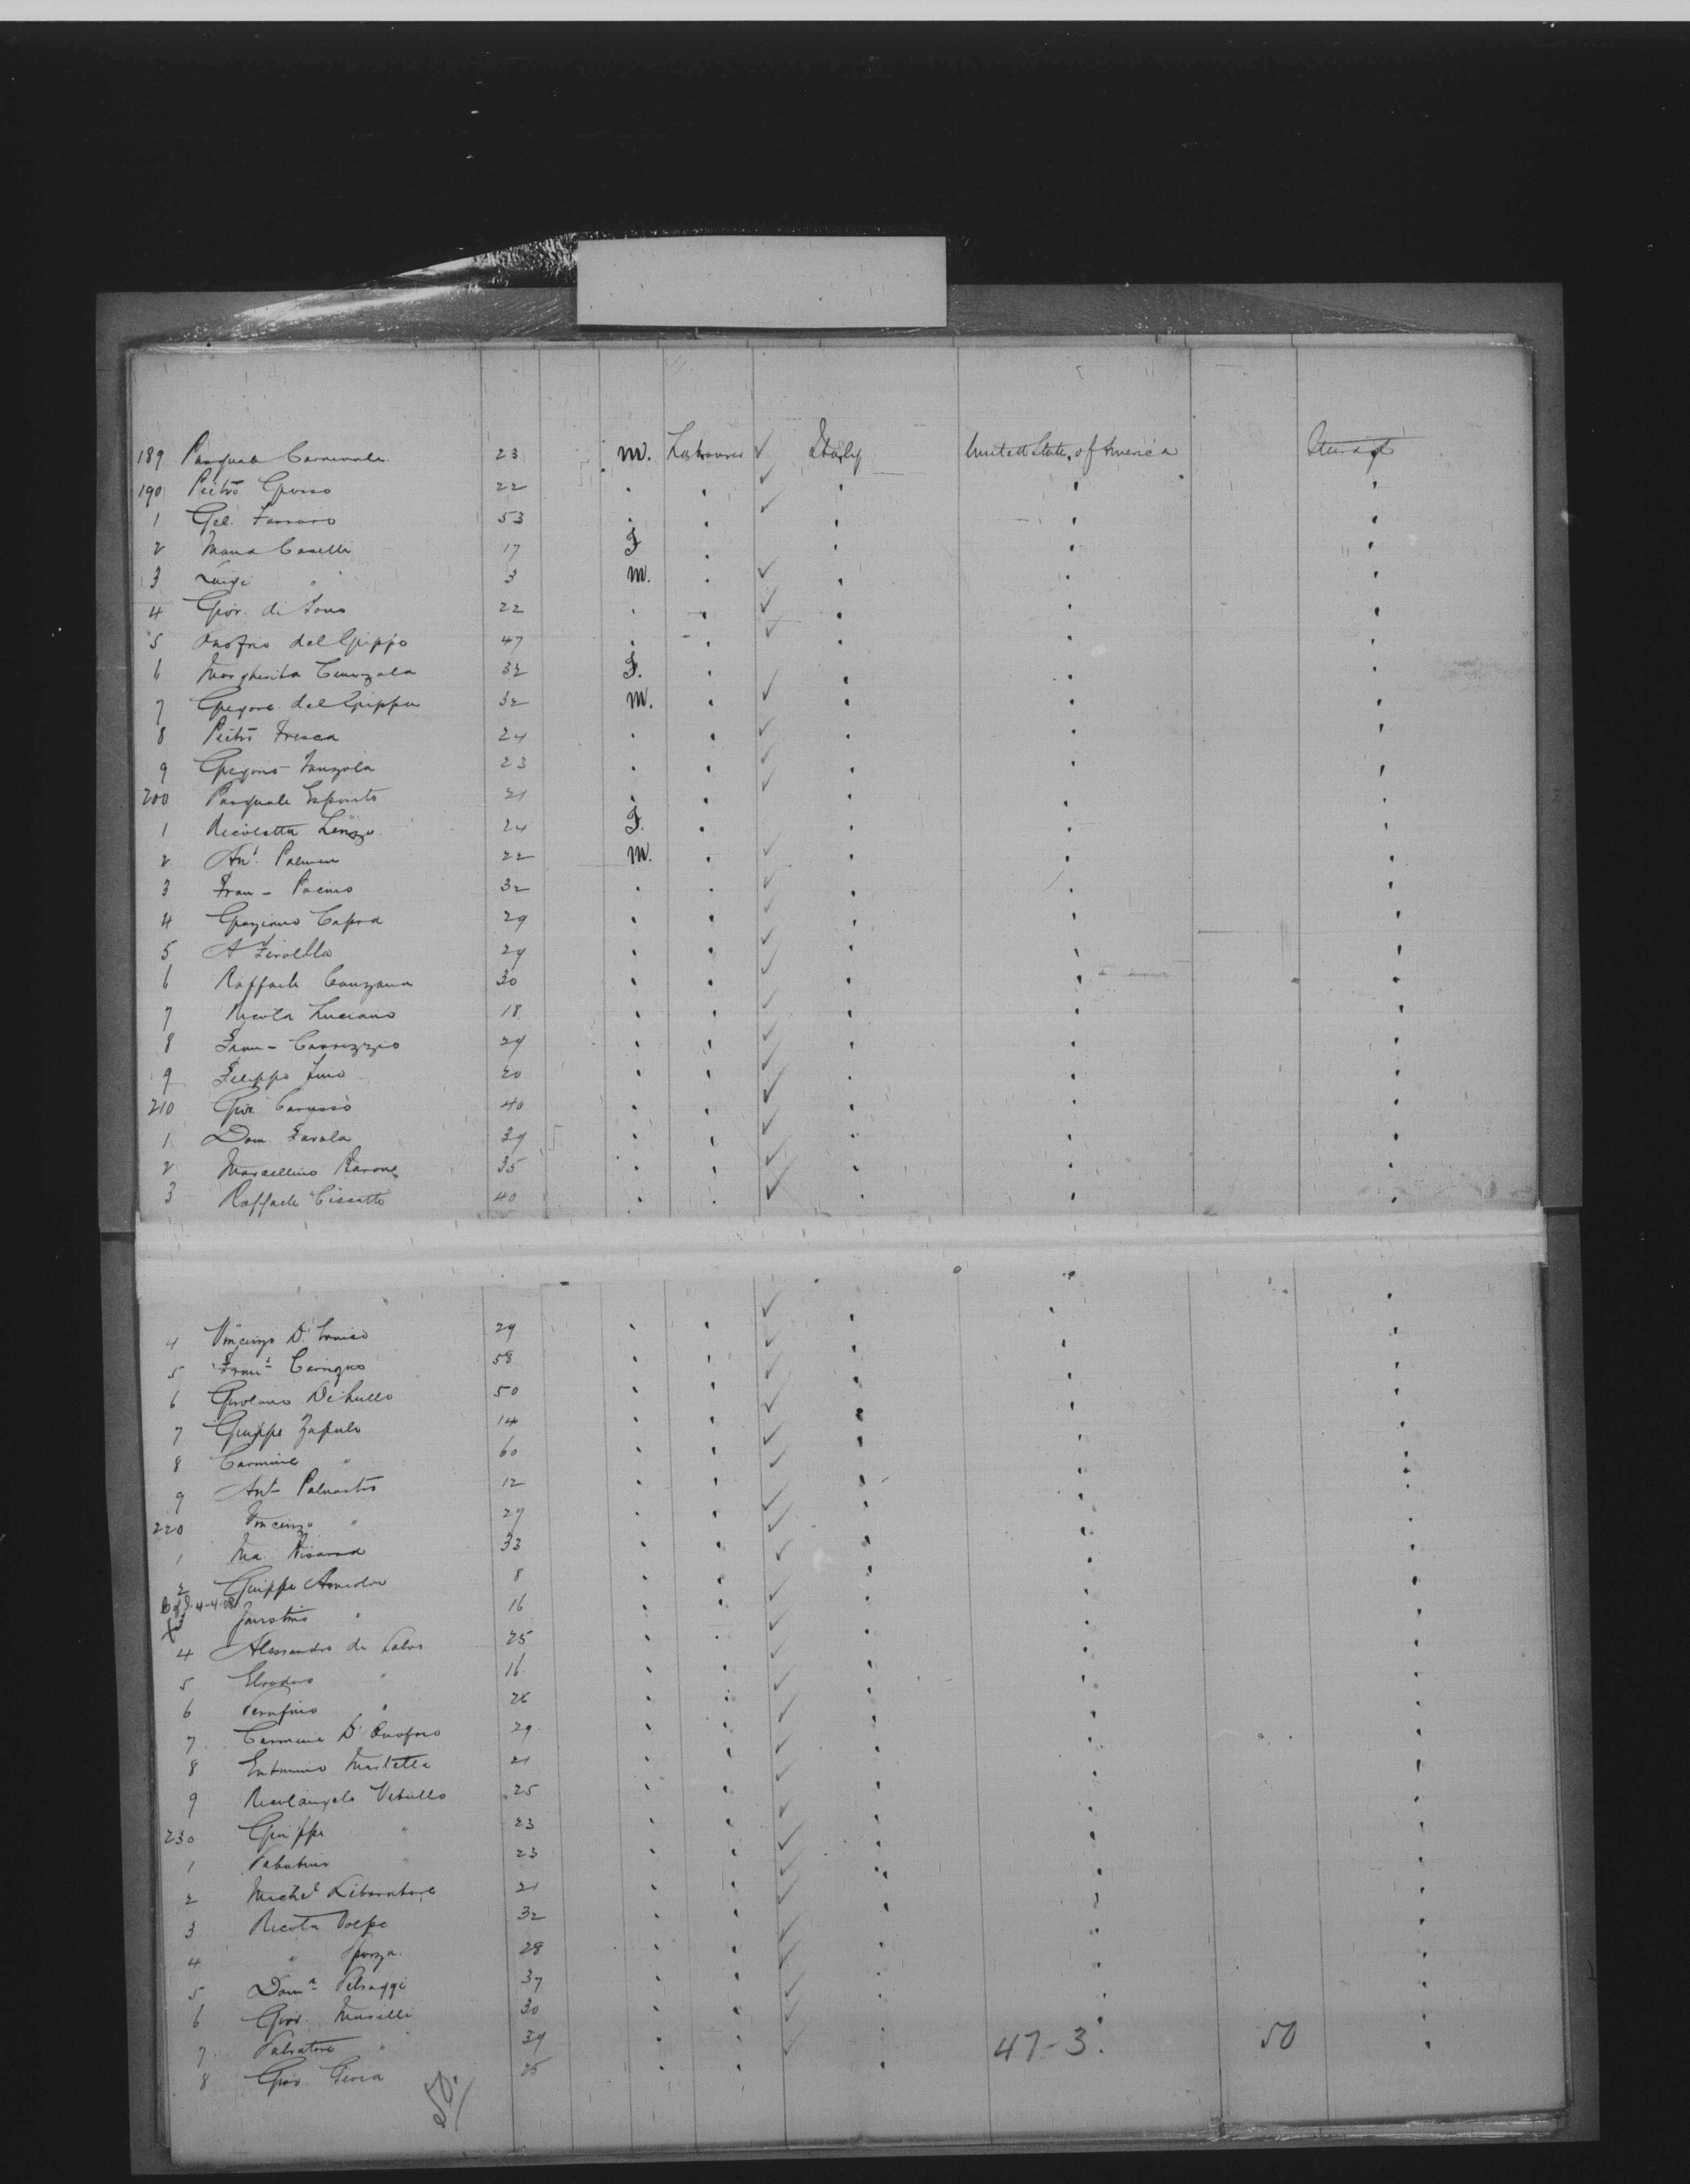 189 Pasquale Carnevale 23 m. Labourer ✓ Italy United State of America Steerage
190 Pietro Grosso 22
1 Gel. Fansaro 53
2 Maria Caselli 17 F
3 Luigi " 3 m. ✓
4 Giov. di Sono 22 ✓
5 Onofrio del Grippo 47 ✓
6 Margherita 32 F.
7 Gregorio del Grippo 32 m. ✓
8 Pietro Fresca 24 ✓
9 Gregorio Fanzola 23 ✓
200 Pasquale Esposito 21 ✓
1 Nicoletta Lenzo 24 F.
2 Ant. 22 m. ✓
3 Fran - Pacino 32 ✓
4 Graziano Capra 29 ✓
5 A Zirolla 29 ✓
6 Raffaele Canzana 30 ✓
7 Nicola Luciano 18 ✓
8 Fran - Carrizzio 29 ✓
9 Filippo 20 ✓
210 Giov. Carusso 40 ✓
1 Dom. Favola 39 ✓
2 Marcellino Barone 35 ✓
3 Raffaele Ciccotto 40 ✓
4 Vincenzo D. 29 ✓
5 Fran Carrigno 58 ✓
6 Girolamo Di Lullo 50 ✓
7 Giuppe Zapulo 14 ✓
8 Carmine " 60 ✓
9 Ant Palmastro 12 ✓
220 Vincenzo " 29 ✓
1 Ma. 33 ✓
2 Giuppe 8 ✓
4-4-08
X3 Faustino " 16 ✓
4 Alessandro di Salvo 25 ✓
5 " 16 ✓
6 Serafino " 26 ✓
7 Carmine D'Onofrio 29 ✓
8 Martella 21 ✓
9 Nicolangelo Vetullo 25 ✓
230 Giuppe " 23 ✓
1 Sabatino " 23 ✓
2 Michel Liberatore 21 ✓
3 Nicola Volpe 32 ✓
4 " Sforza 28 ✓
5 Dom Petraggi 37 ✓
6 Giov. Maselli 30 ✓
7 Salvatore " 39 ✓ 47-3. 50
8 Giov. 25
50.